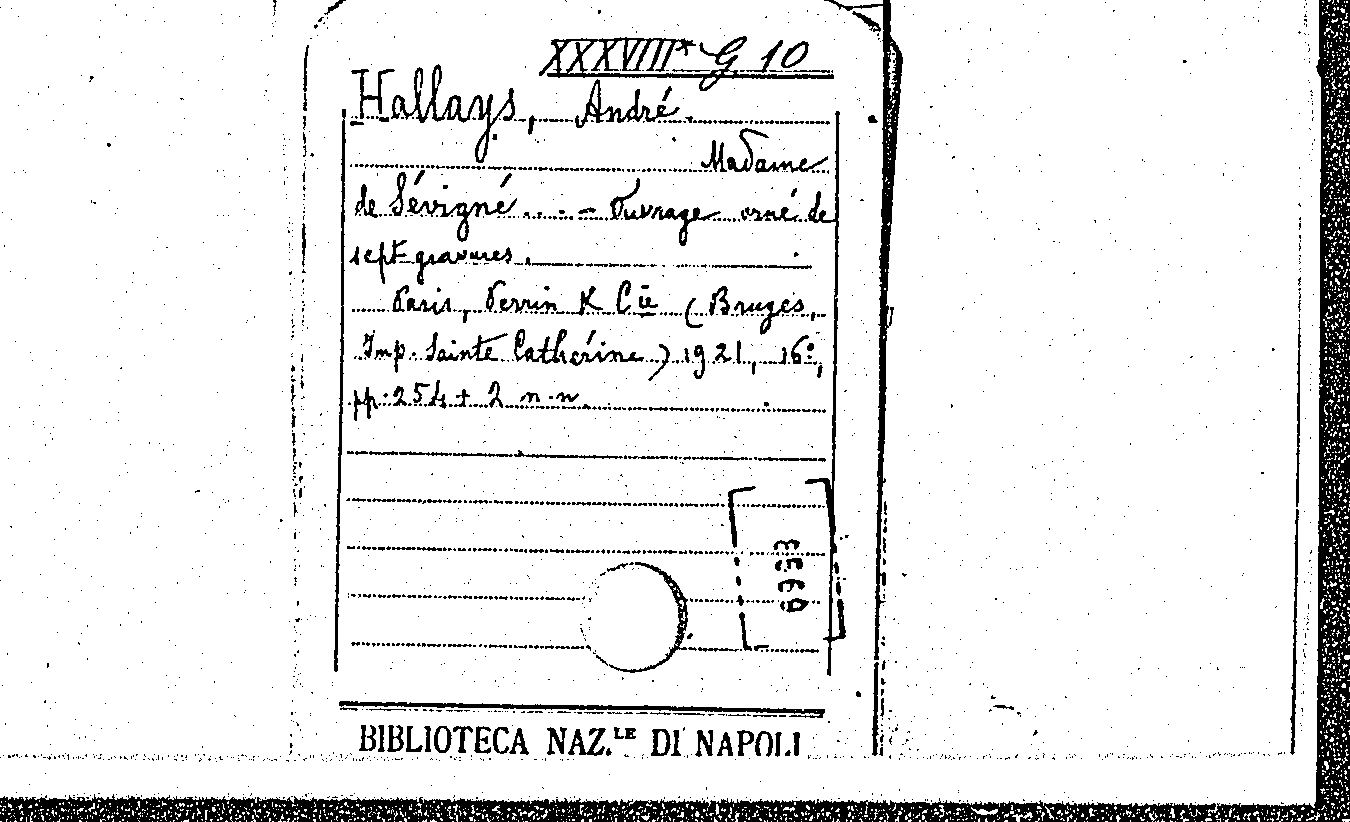 XXXVIII* G 10
Hallays, André.
Madame
de Sévigné.... - Ouvrage orné de
sept gravures.
Paris, Perrin & Cie (Bruges,
Imp. Sainte Catherine) 1921, 16º,
pp. 254 + 2 n.n.
BIBLIOTECA NAZ.LE DI NAPOLI